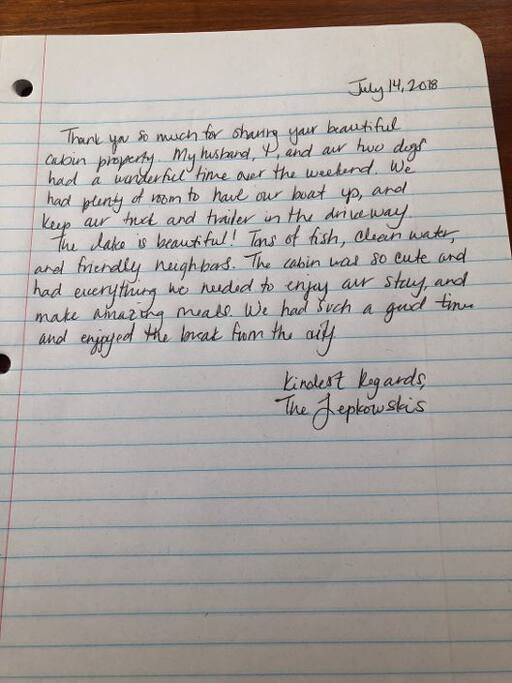 July 14, 2018
Thank you so much for sharing your beautiful
cabin property. My husband, I, and our two dogs
had a wonderful time over the weekend. We
had plenty of room to haul our boat up, and
keep our truck and trailer in the driveway.
The lake is beautiful! Tons of fish, clean water,
and friendly neighbors. The cabin was so cute and
had everything we needed to enjoy our stay, and
make amazing meals. We had such a good time
and enjoyed the break from the city
Kindest Regards,
The Lepkowskis